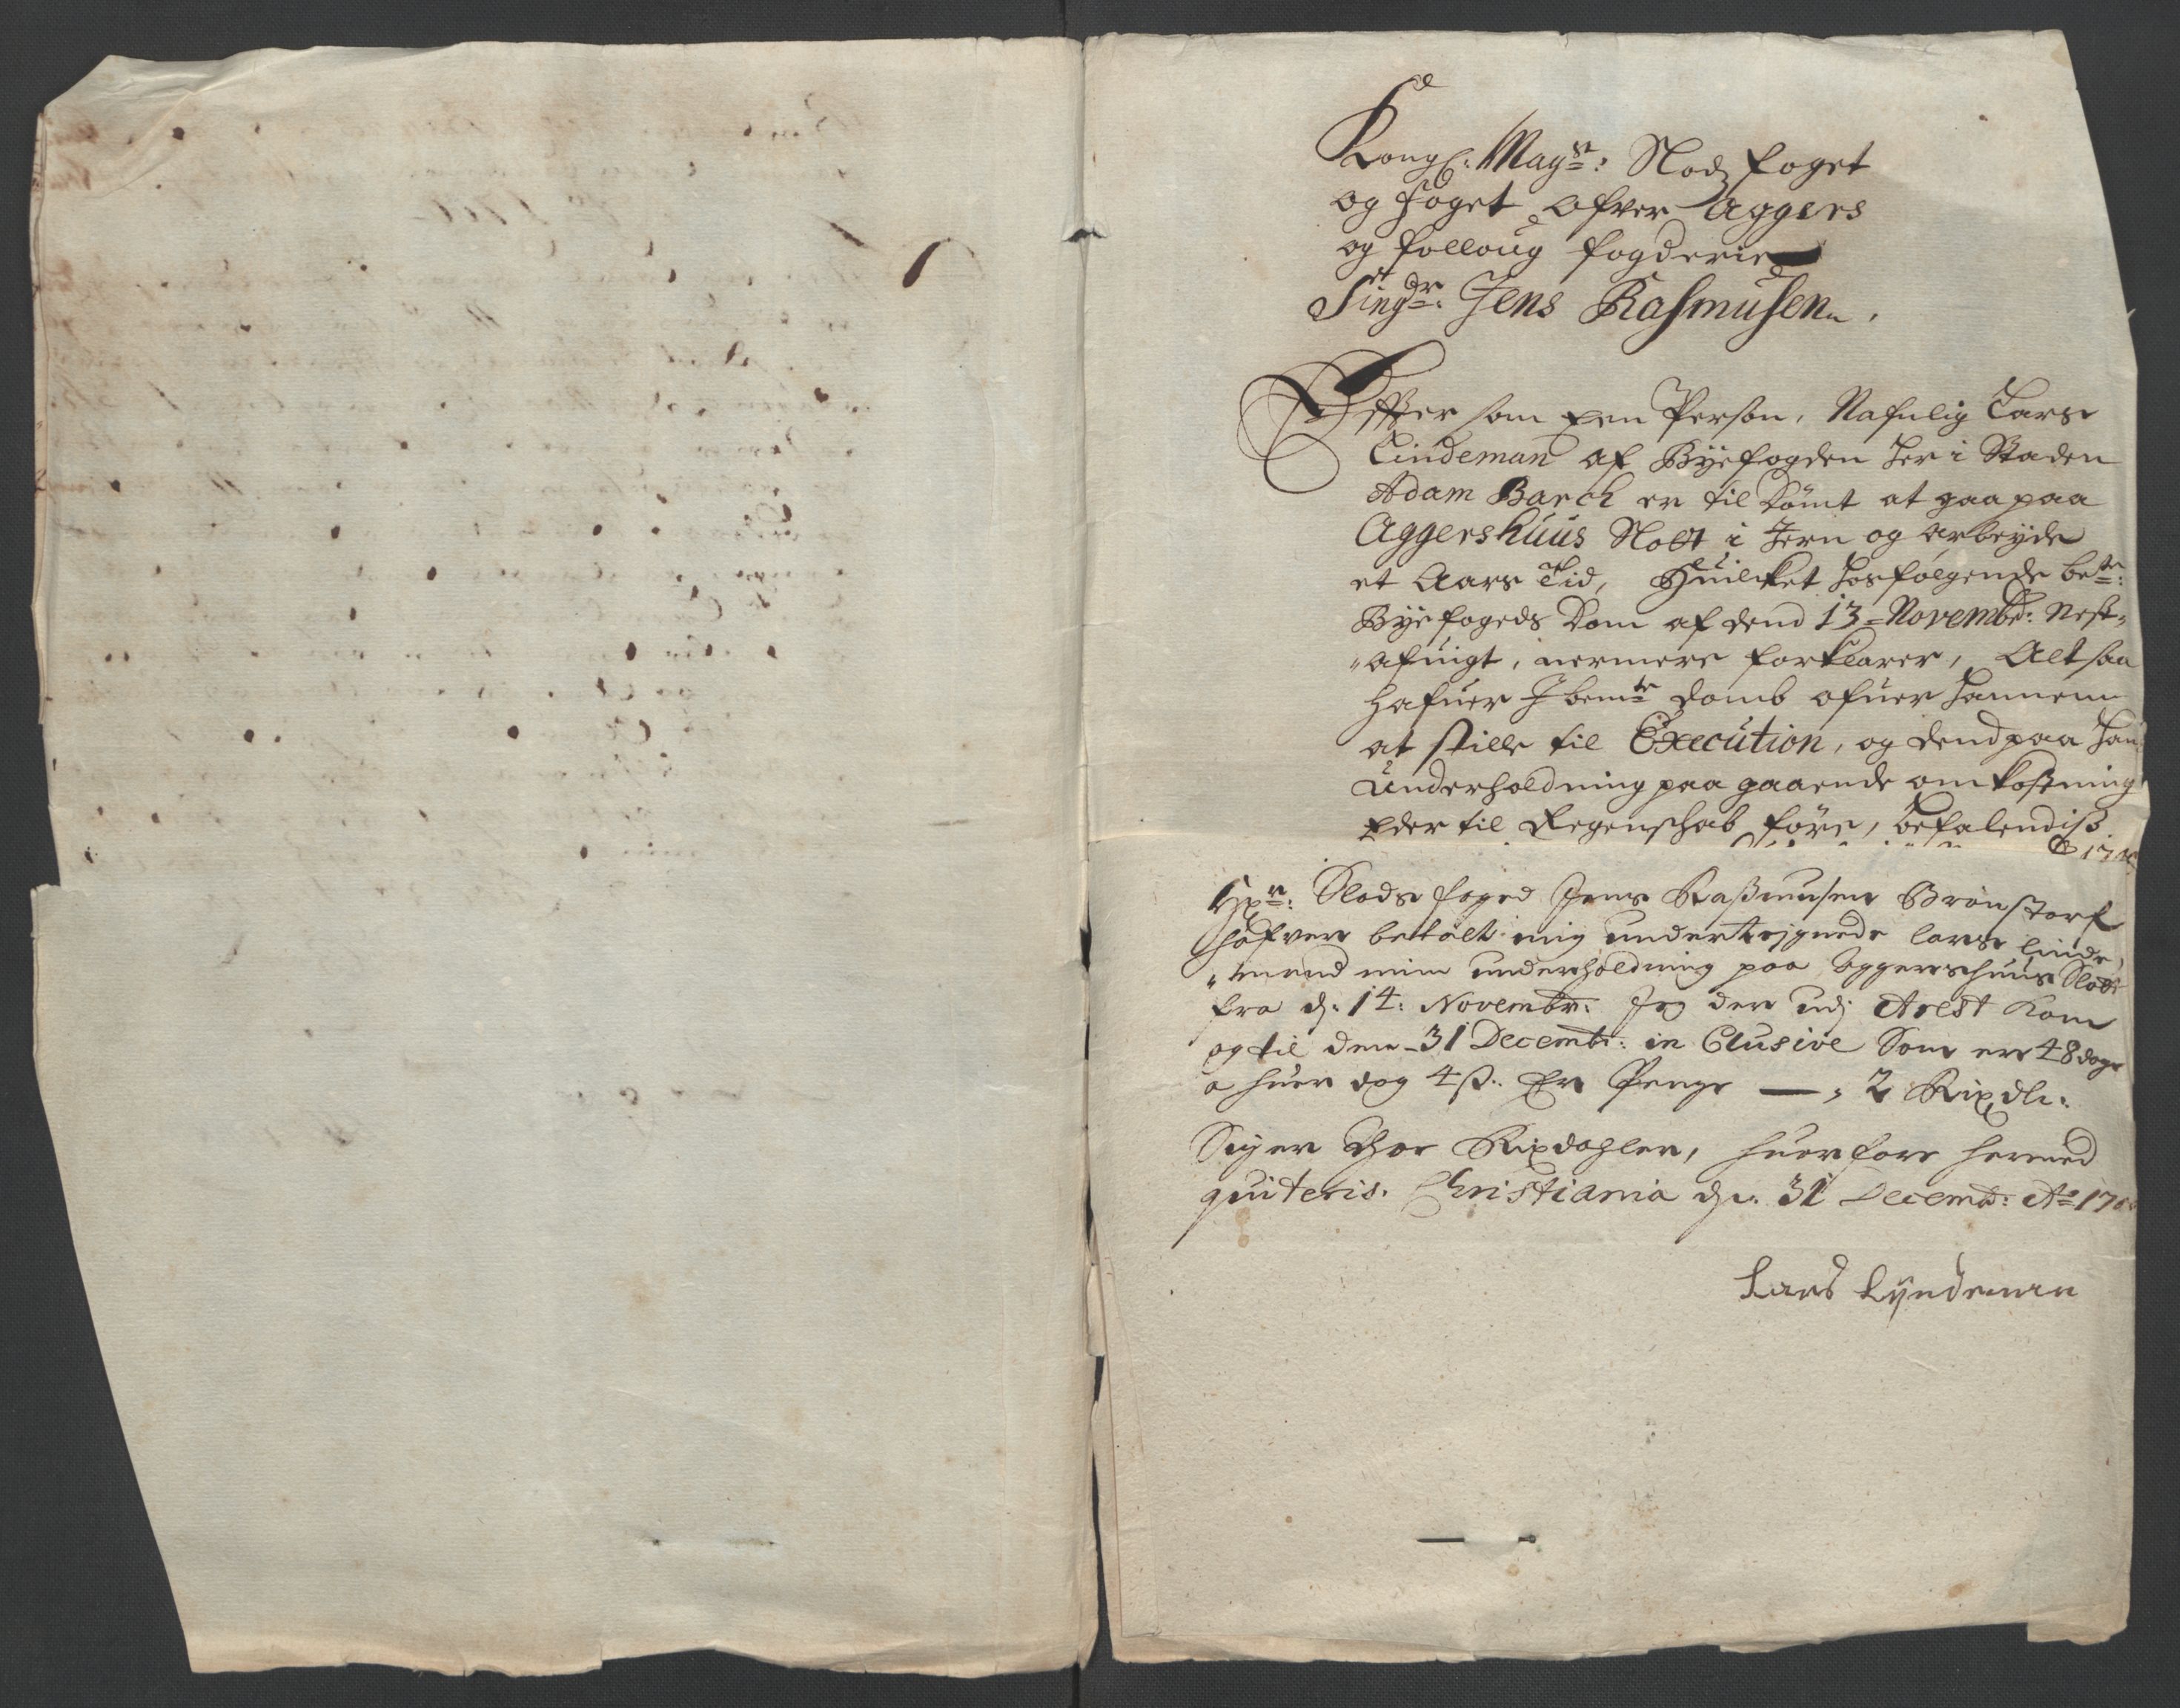 Kongl: May.st: Slodz foget
og foget ofver Aggers
og folloug fogderie
Sing.dr: Jens Rasmusen.
Efftersom Een Person, Nafnlig Lars
Lindeman af Byefogden her i Staden
Adam Barch er til dömt at gaa paa
Aggershuus Slott i Jern og arbeyde
et Aars Tid, Huilcket hosfølgende be.te:
Byefogeds Dom af dend 13 = Novembr: nest-
"afuigt, nermere forklarer, Alt saa
hafuer J bem.te domb ofuer hannem
at stille til Execution, og dend paa hans
underholdning paa gaaende omkostning
Eder til Regenschab före, befalendis
Slods foged Jens Rasmusen Brönstorf
hafver betalt mig undertegnede Lars Linde,
"mand min underholdning paa Aggershuus Slott
fra d: 14: Novembr: Jeg der udj Arest kom
og til den 31 Decembr: in Clusive Som er 48 dage
a huer dag 4 ß. Er Penge — , 2 Rixdlr.
Siger Thoe Rixdahler, huorfore hermed
quiteris. Christiania dn. 31 Decembr: Ao 170
Lars Lyndeman